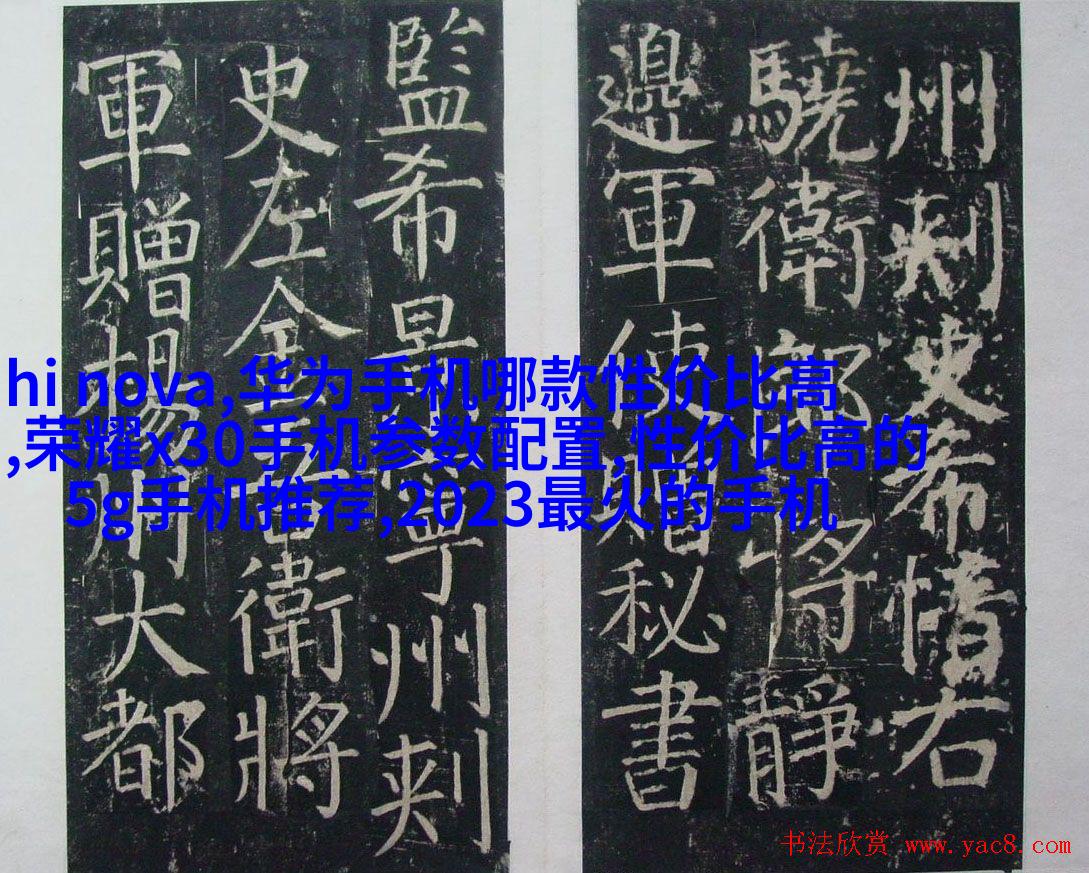 州刾史希惰右
驍衛郎将靜
邊軍使贈秘書
監希景寧州刾
史左金吾衛將
軍贈揚州大都
hi nova,华为手机哪款性价比高
,荣耀x30手机参数配置,性价比高的
5g手机推荐,2023最火的手机
书法欣赏 www.yac8.com